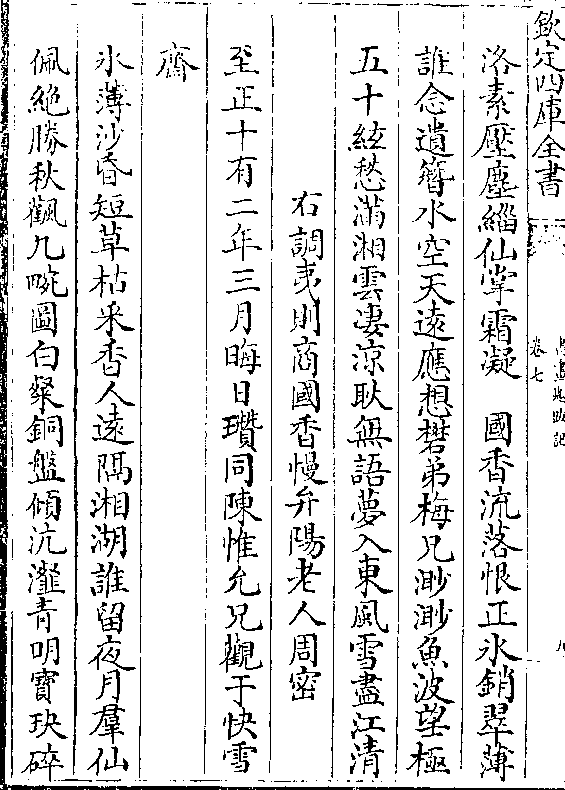 欽定四庫全書
書畫題跋記
卷七
洛素壓塵緇仙掌霜凝　國香流落恨正氷銷翠薄
誰念遺簪水空天遠應想礬弟梅兄渺渺魚波望極
五十絃愁滿湘雲凄涼耿無語夢入東風雪盡江清
右調夷則商國香慢弁陽老人周密
至正十有二年三月晦日瓚同陳惟允兄觀于快雪
齋
氷薄沙昏短草枯采香人遠隔湘湖誰留夜月羣仙
佩絶勝秋飌九畹圖白粲銅盤傾沆瀣青明寶玦碎